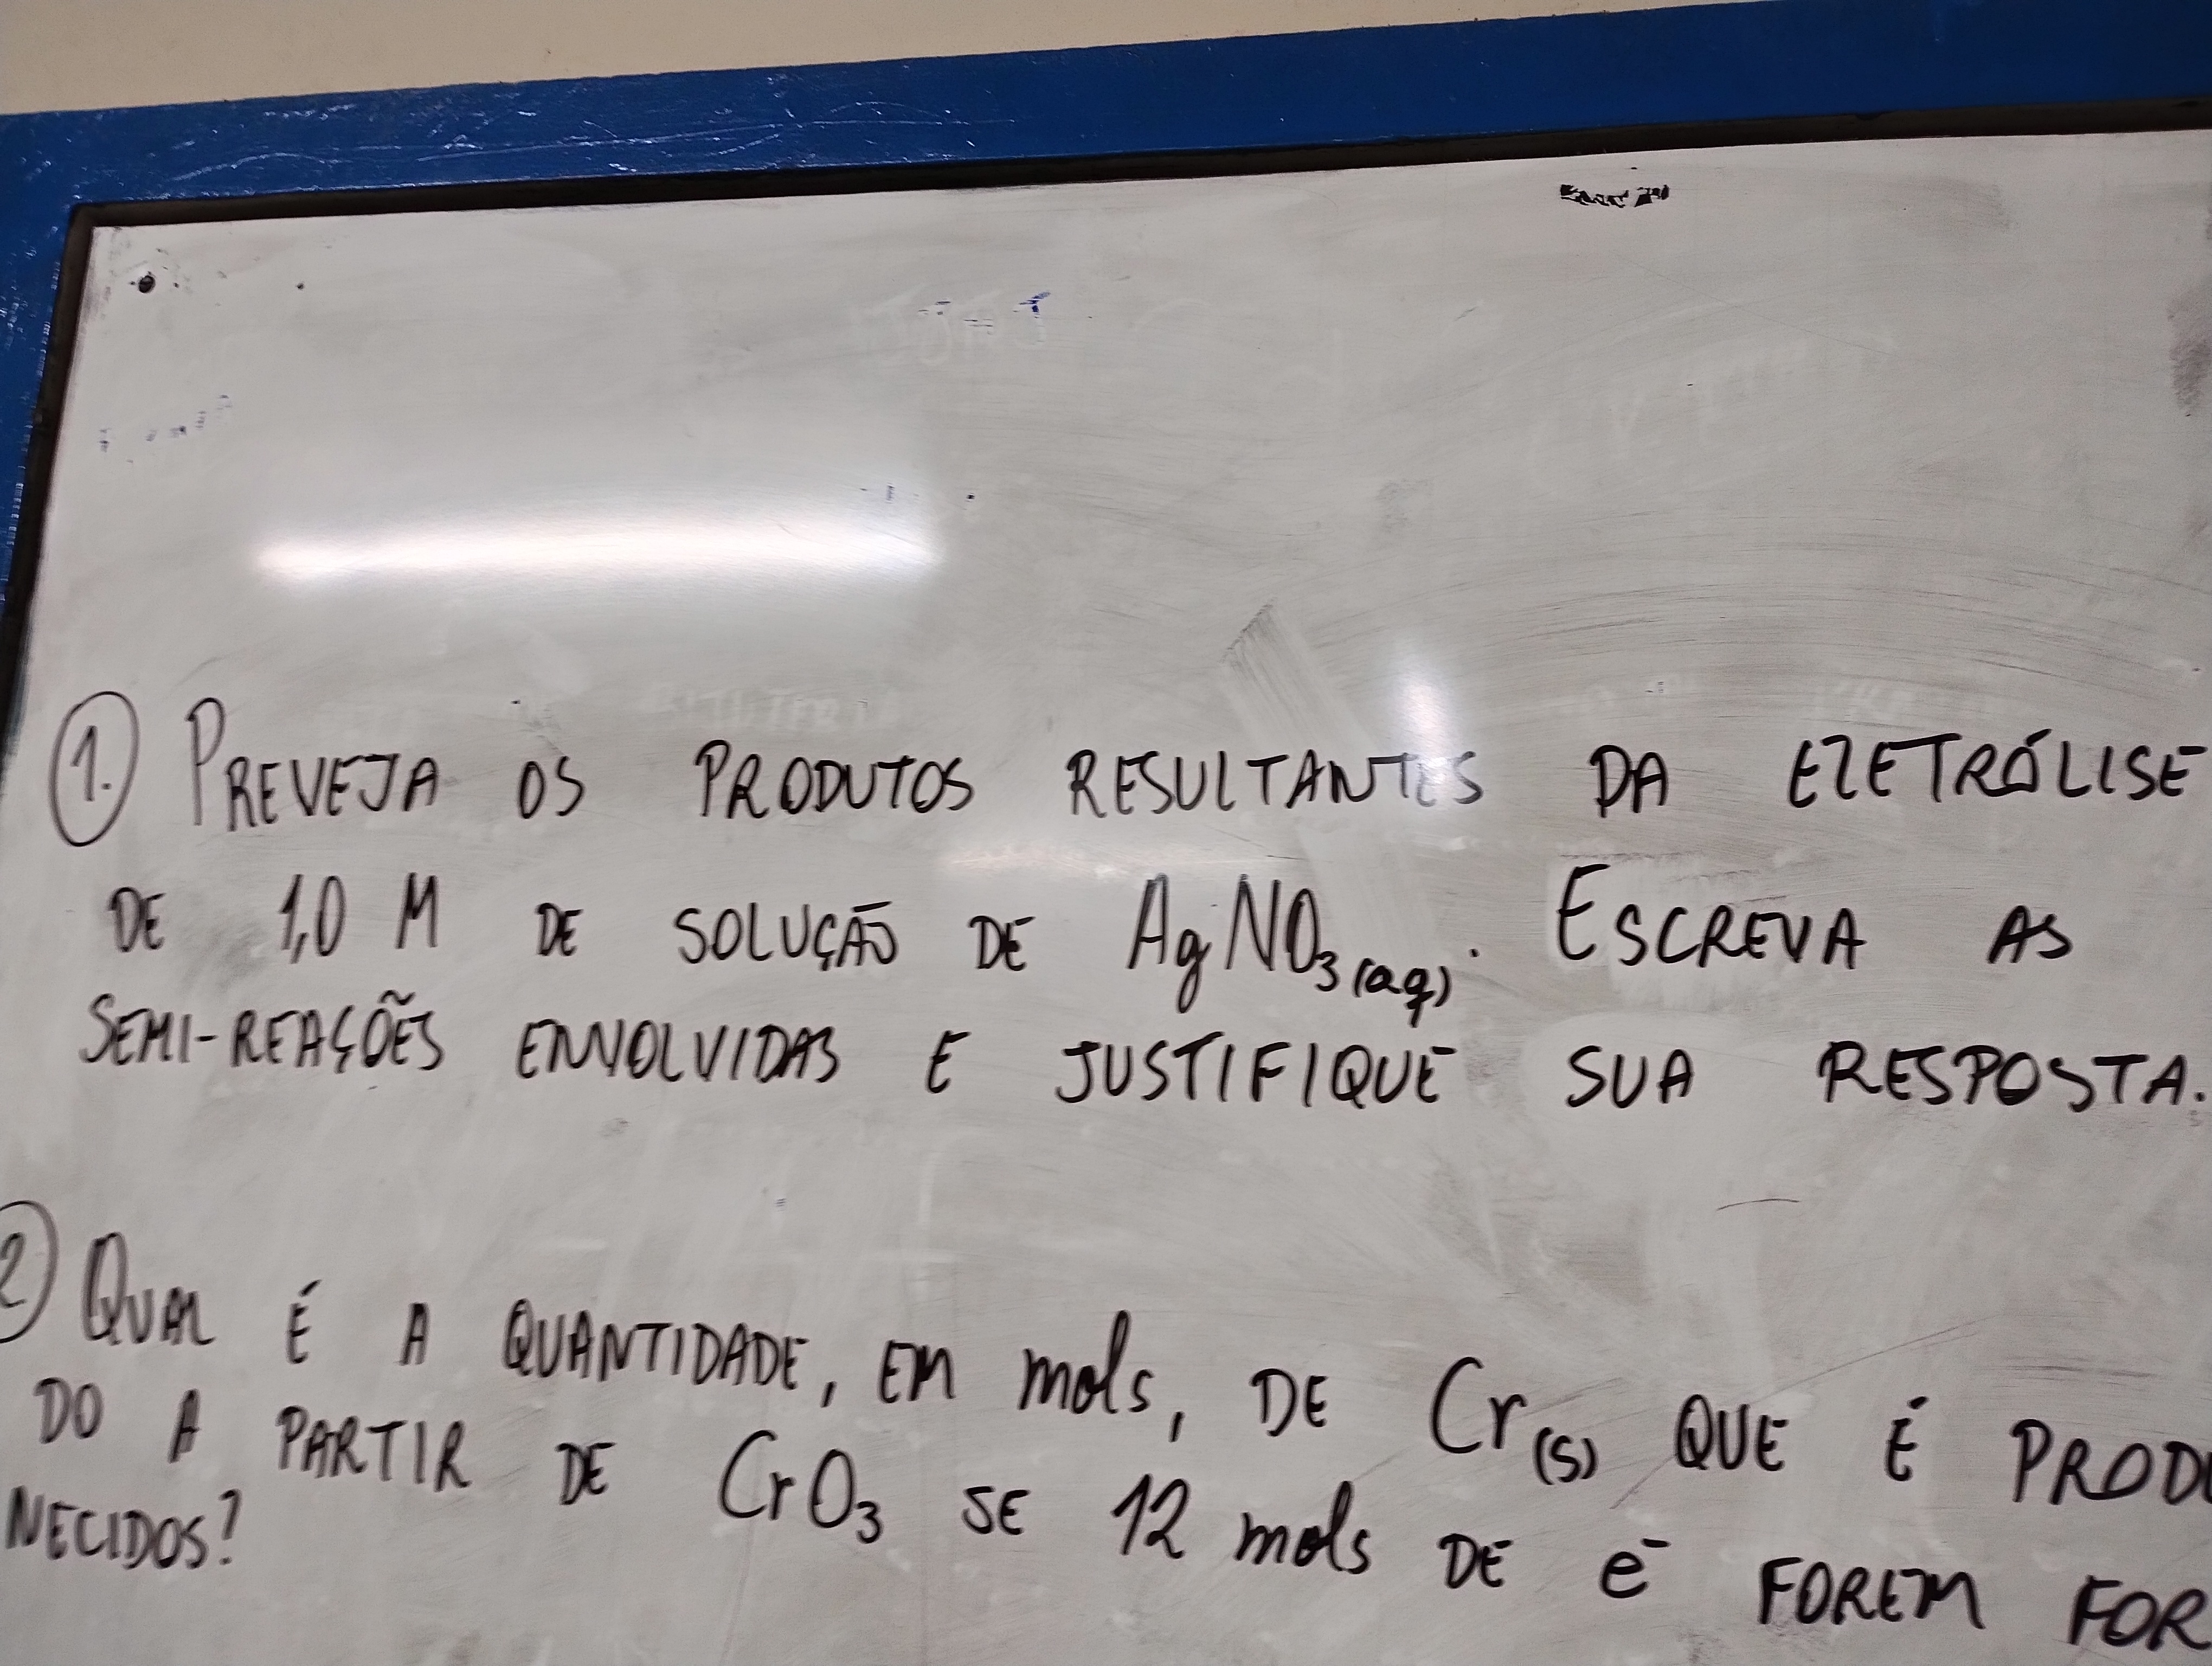 1. PREVEJA OS PRODUTOS RESULTANTES DA ELETRÓLISE
DE 1,0 M DE SOLUÇÃO DE AgNO₃(aq). ESCREVA AS
SEMI-REAÇÕES ENVOLVIDAS E JUSTIFIQUE SUA RESPOSTA.
2 QUAL É A QUANTIDADE, EM mols, DE Cr(s) QUE É PRODU
DO A PARTIR DE CrO₃ SE 12 mols DE e⁻ FOREM FOR
NECIDOS?